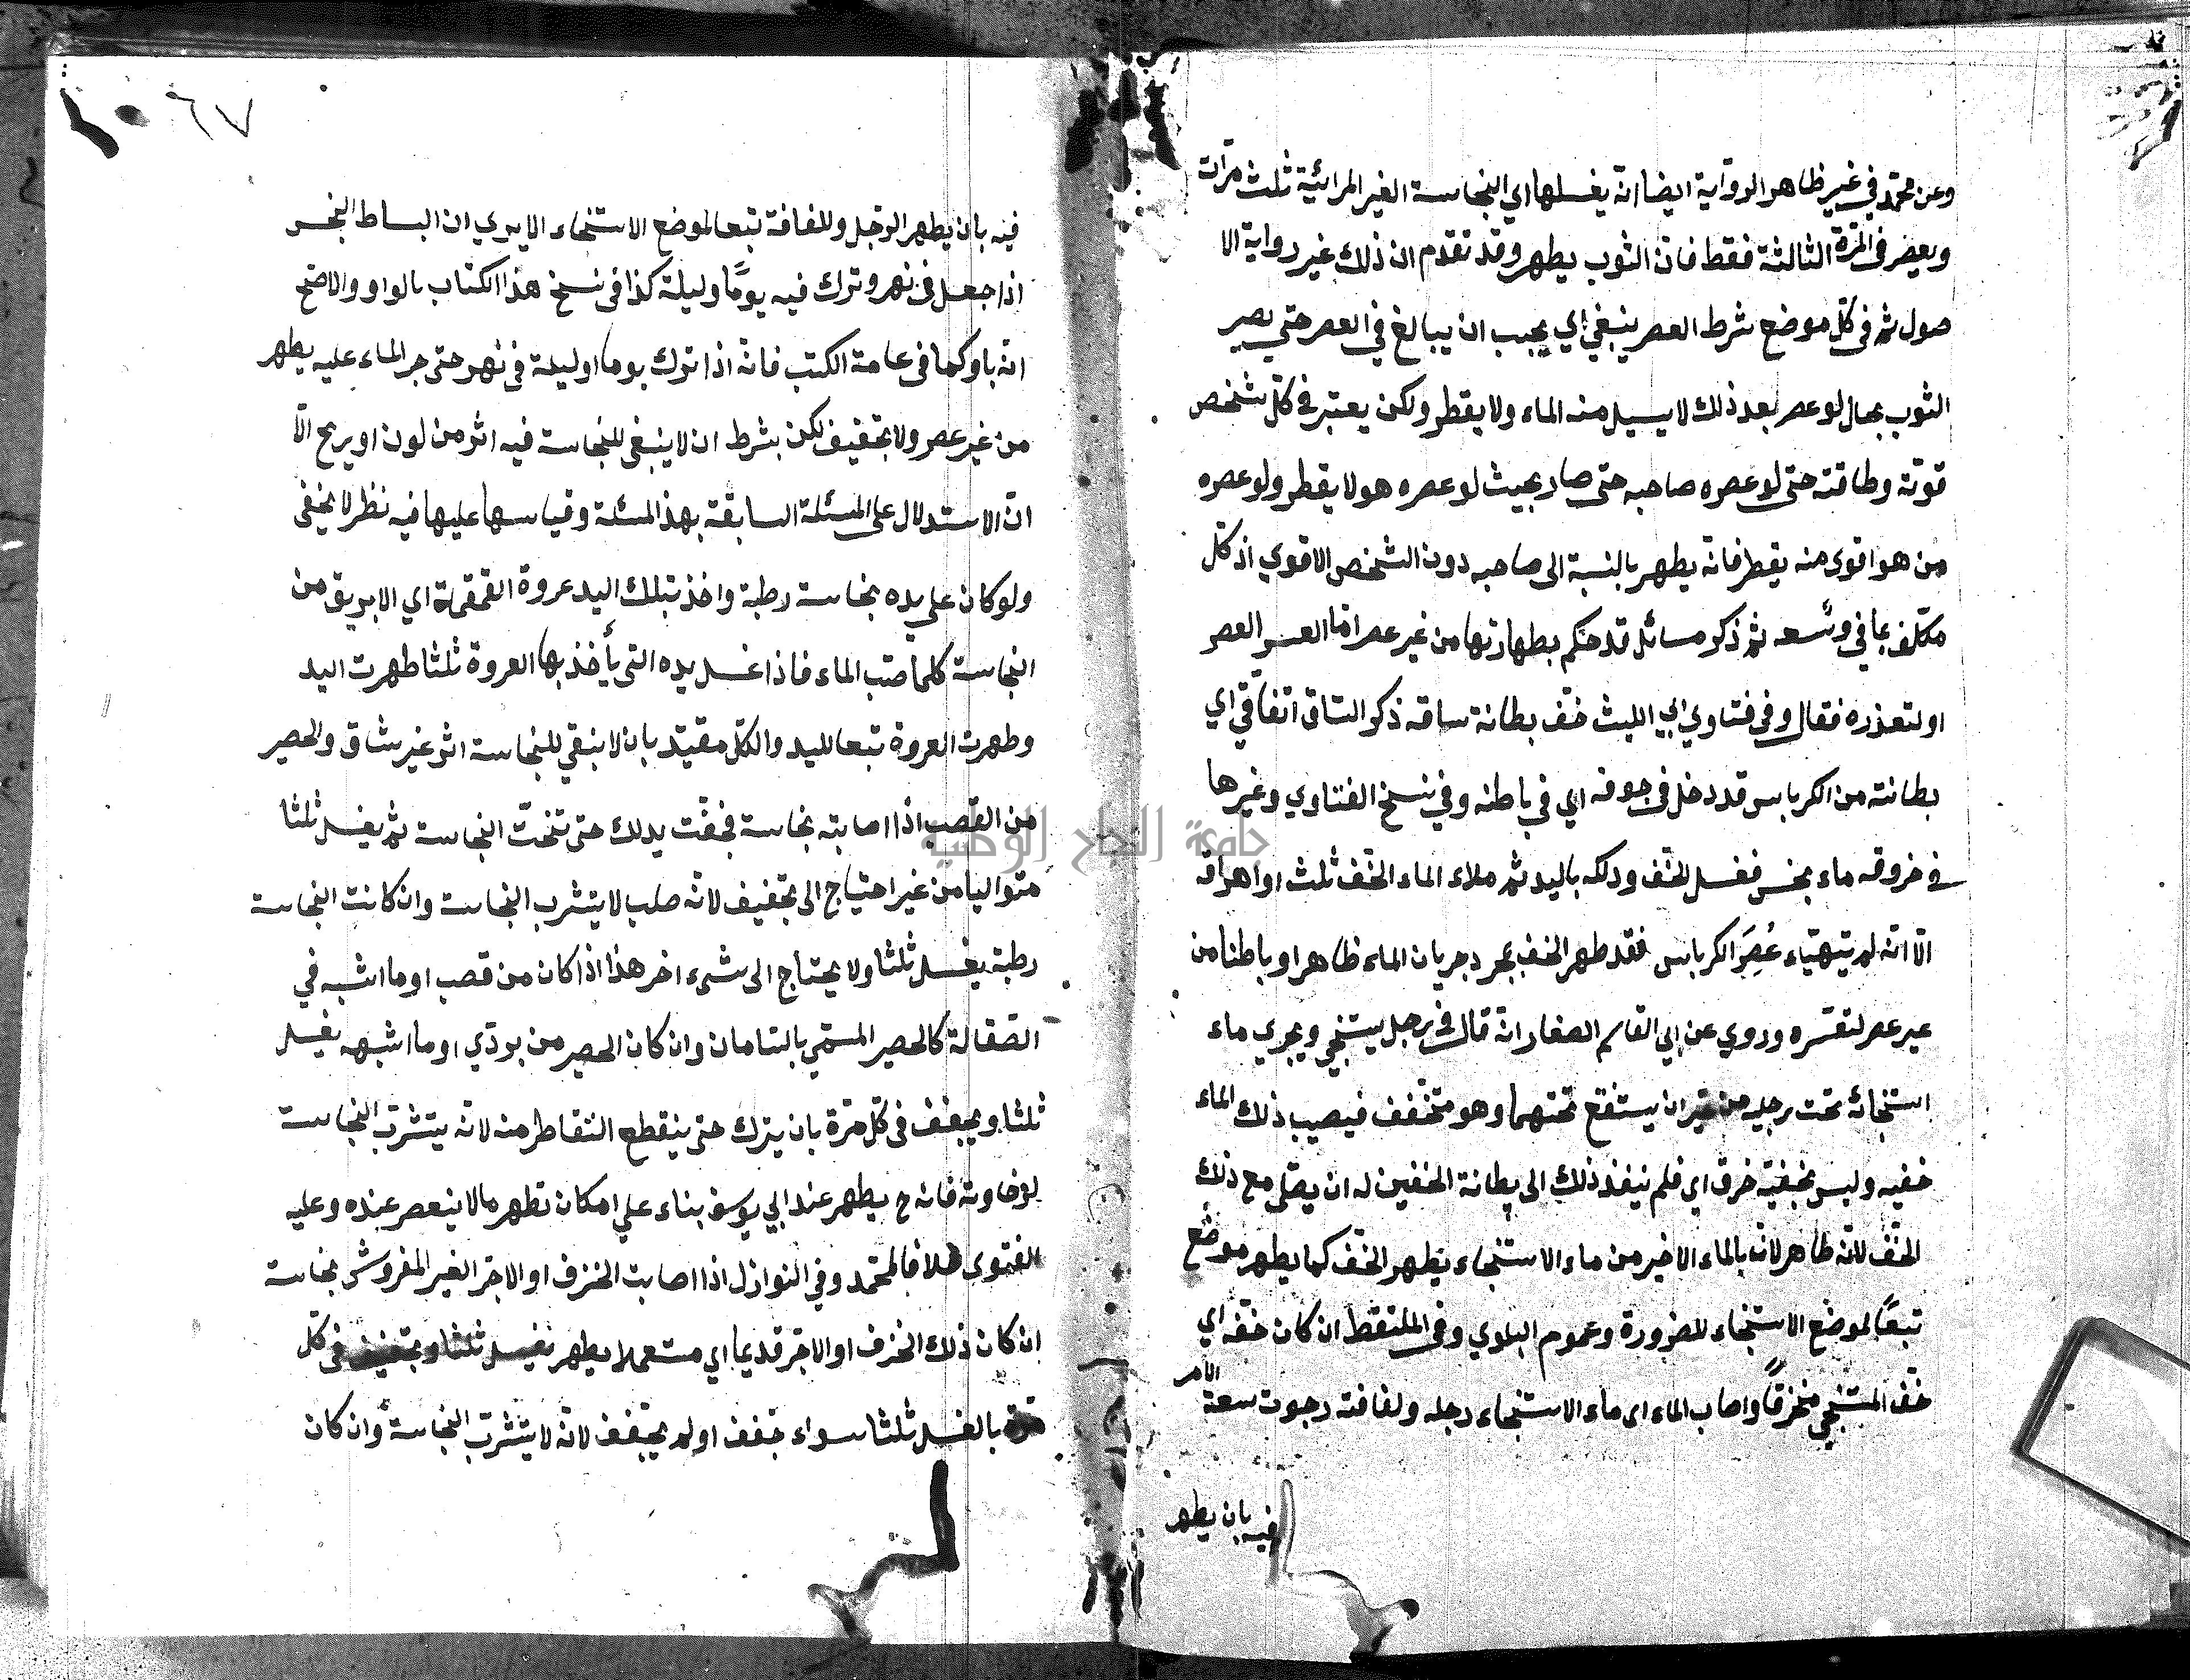 وعن محمّد في غير ظاهر الرواية ايضا انّه يغسلها اي النجاسة الغير المرائية ثلث مرّات
ويعصر فى المرّة الثالثة فقط فانّ الثوب يطهر وقد تقدم ان ذلك غير رواية الا
صول ثم فى كلّ موضع شرط العصر ينبغي اي يجب ان يبالغ في العصر حتي يصير
الثوب بحال لو عصر بعد ذلك لا يسيل منه الماء ولا يقطر ولكن يعتبر في كلّ شخص
قوّته وطاقته حتى لو عصره صاحبه حتى صار بحيث لو عصره هو لا يقطر ولو عصره
من هو اقوى منه يقطر فانّه يطهر بالنسبة الى صاحبه دون الشخص الاقوي اذ كلّ
مكلّف بما في وسعه ثمّ ذكر مسائل قد حكم بطهارتها من غير عصر امّا العسر العصر
او لتعذره فقال وفى فتاوي ابي الليث خفّ بطانة ساقه ذكر السّاق اتفاقي اي
بطانته من الكرباس قد دخل فى جوفه اي في باطنه وفي نسخ الفتاوي وغيرها
في خروقه ماء نجس فغسل الخف ودلكه باليد ثم ملاء الماء الخفّ ثلث اواهراقه
الّا انّه لم يتهيّاء عُصِرَ الكرباس فقد طهر الخف بمجرد جريان الماء ظاهرا وباطنا من
غير عصر لتعسّره وروي عن ابي القاسم الصفار انّه قال في رجل يستنجي ويجري ماء
استنجائه تحت رجليه من غير ان يستنقع تحتهما وهو متخفّف فيصيب ذلك الماء
خفيه وليس بخفيّه خرق اي فلم ينفذ ذلك الى بطانة الخفين له ان يصلّي مع ذلك
الخفّ لانّه طاهر لانّ بالماء الاخير من ماء الاستنجاء يطهر الخفّ كما يطهر موضع
تبعًا لموضع الاستنجاء للضرورة وعموم البلوي وفى الملتقط ان كان خفّه اي
خفّ المستنجي منخرقًا واصاب الماء اى ماء الاستنجاء رجله ولفافته رجوت سعة الامر
فيه بان يطهر
٦٧
فيه بان يطهر الرّجل واللفافة تبعا لموضع الاستنجاء الا يري ان البساط النجس
اذا جعل فى نهر وترك فيه يومًا وليلة كذا فى نسخ هذا الكتاب بالواو والاصح
انّه باو كما فى عامة الكتب فانّه اذا ترك يوما او ليلة فى نهر حتى جر الماء عليه يطهر
من غير عصر ولا تجفيف لكن بشرط ان لا ينبغي للنجاسة فيه اثر من لون او ريح الّا
انّ الاستدلال على المسئلة السابقة بهذ المسئلة وقياسها عليها فيه نظر لا يخفى
ولو كان علي يده نجاسة رطبة واخذ بتلك اليد عروة القمقمة اي الابريق من
النجاسة كلما صبّ الماء فاذا غسل يده التى يأخذ بها العروة ثلثا طهرت اليد
وطهرت العروة تبعا لليد والكلّ مقيّد بان لا ينبقي للنجاسة اثر غير شاق والحصير
من القصب اذا اصابته نجاسة فجفّت يدلك حتى تنحتّ النجاسة ثم يغسل ثلثا
متواليا من غير احتياج الى تجفيف لانّه صلب لا يتشرب النجاسة وان كانت النجاسة
رطبة يغسل ثلثا ولا يحتاج الى شىء اخر هذا اذا كان من قصب او ما اشبه في
الصّقالة كالحصير المسمّي بالسامان وان كان الحصير من بردّي او ما اشبهه يغسل
ثلثا ويجفف فى كلّ مرّة بان يترك حتى ينقطع التقاطر منه لانّه يتشرّب النجاسة
لرخاوته فانه ح يطهر عند ابي يوسف بناء علي امكان تطهر مالا ينعصر عنده وعليه
الفتوى خلافا لمحمّد وفي النوازل اذا اصابت الخزف او الاجرّ الغير المفروش نجاسة
ان كان ذلك الخزف او الاجر قديما اي مستعملا يطهر بغسل ثلثا وتجفيف فى كلّ
مرة بالغسل ثلثا سواء جفف او لم يجفف لانّه لا يتشرّب النجاسة وان كان
جامعة النجاح الوطنية